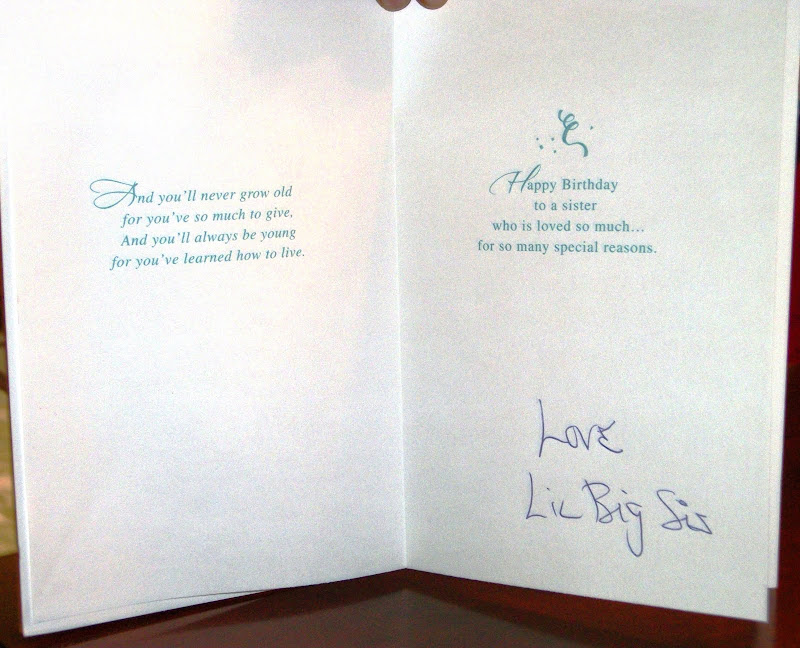 And you'll never grow old
for you've so much to give,
And you'll always be young
for you've learned how to live.
Happy Birthday
to a sister
who is loved so much...
for so many special reasons.
Love
Lil Big Sis